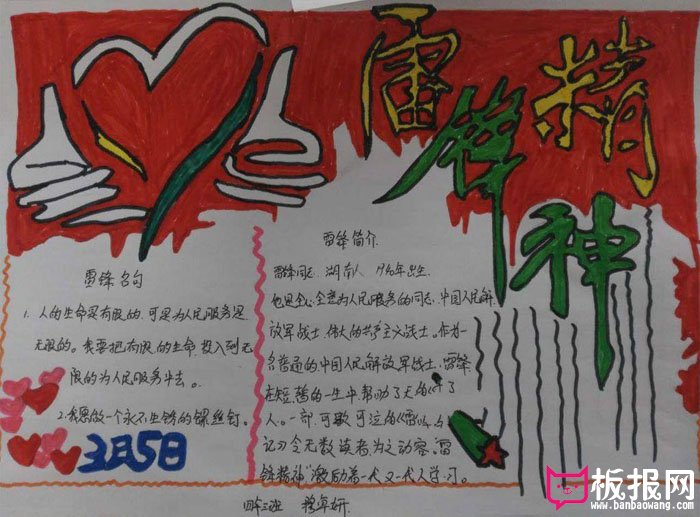 雷锋精神
雷锋名句
1. 人的生命是有限的,可是为人民服务是
无限的。我要把有限的生命,投入到无
限的为人民服务中去。
2.我愿做一个永不生锈的螺丝钉。
3月5日
雷锋简介
雷锋同志,湖南人,1940年出生.
他是全心全意为人民服务的同志,中国人民解
放军战士,伟大的共产主义战士。作为一
名普通的中国人民解放军战士,雷锋
在短暂的一生中帮助了无
人。一部可歌可泣的《雷
记》令无数读者为之动容。“雷
锋精神”激励着一代又一代人学习。
四年三班
板报网
www.banbaowang.com